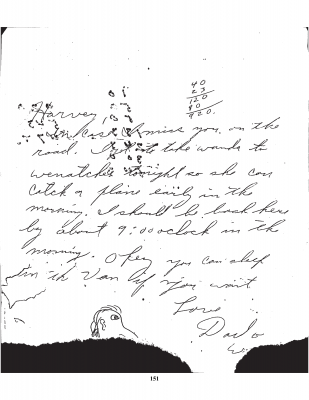 40
23
120
80
920.
Harvey,
In case I miss you, on the
road. I have to take wanda to
wenatchee tonight so she can
catch a plane early in the
morning. I should be back here
by about 9:00 oclock in the
morning. Okey you can sleep
in th Van if you want
Love
Dad
151